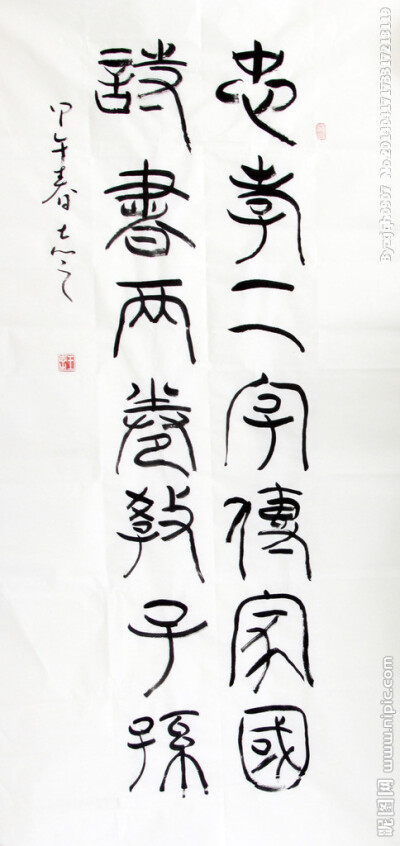 忠孝二字傳家國
詩書兩卷教子孫
甲午春
昵图网 www.nipic.com